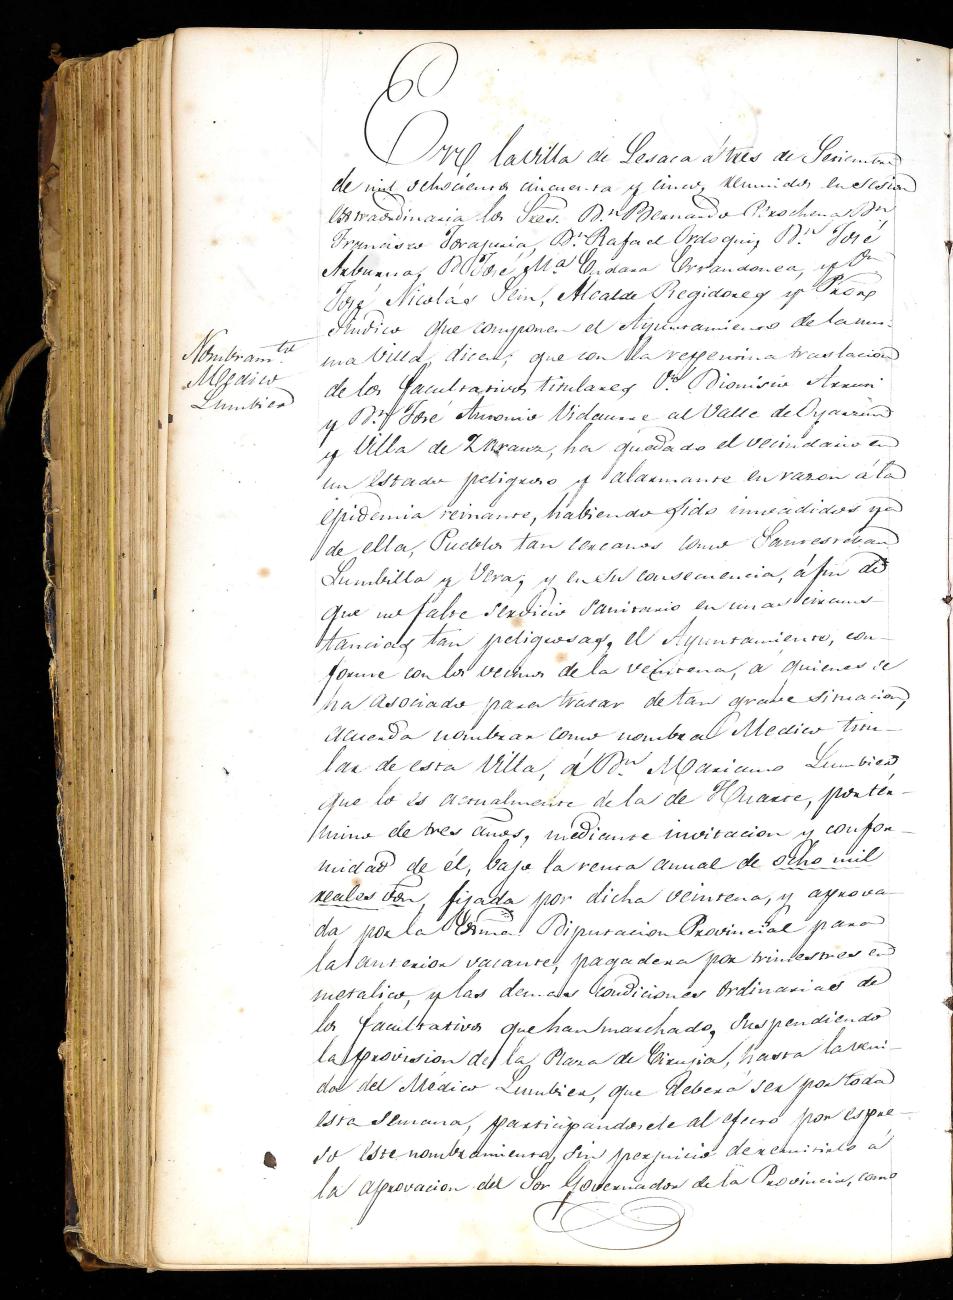 En la villa de Lesaca á tres de Setiembre
de mil ochocientos cincuenta y cinco, reunidos en sesion
estraordinaria los Sres. Dn Bernardo Dn
Francisco Dn Rafael Ordoqui, Dn José
Dn José Ma Endara Errandonea, y Dn
José Nicolás Sein, Alcalde Regidores y Procr
Sindico que componen el Ayuntamiento de la mis-
ma Villa, dicen; que con la repentina traslacion
de los facultativos titulares Dn Dionisio Arruri
y Dn José Antonio Vidaurre al Valle de Oyarzun
y Villa de Zarauz, ha quedado el vecindario en
un estado peligroso y alarmante en razon á la
epidemia reinante, habiendo sido invadidos ya
de ella, Pueblos tan cercanos como Santesteban
Sumbilla y Vera, y en su consecuencia, á fin de
que no falte servicio sanitario en unas circuns-
tancias tan peligrosas, el Ayuntamiento, con-
forme con los vecinos de la veintena, á quienes se
ha asociado para tratar de tan grave situacion,
acuerda nombrar como nombra Medico titu-
lar de esta Villa, á Dn Mariano Lumbier
que lo es actualmente de la de Huarte, por tér-
mino de tres años, mediante invitacion y confor-
midad de él, bajo la renta anual de ocho mil
reales von, fijada por dicha veintena, y aprova-
da por la Exma. Diputacion Provincial para
la anterior vacante, pagadera por trimestres en
metalico, y las demas condiciones ordinarias de
los facultativos que han marchado, suspendiendo
la provision de la Plaza de Cirujia, hasta la veni-
da del Médico Lumbier, que deberá ser por toda
esta semana, participandosele al efecto por espre-
so este nombramiento, sin perjuicio de remitirlo á
la aprovacion del Sor Governador de la Provincia, como
Nombramto
Medico
Lumbier